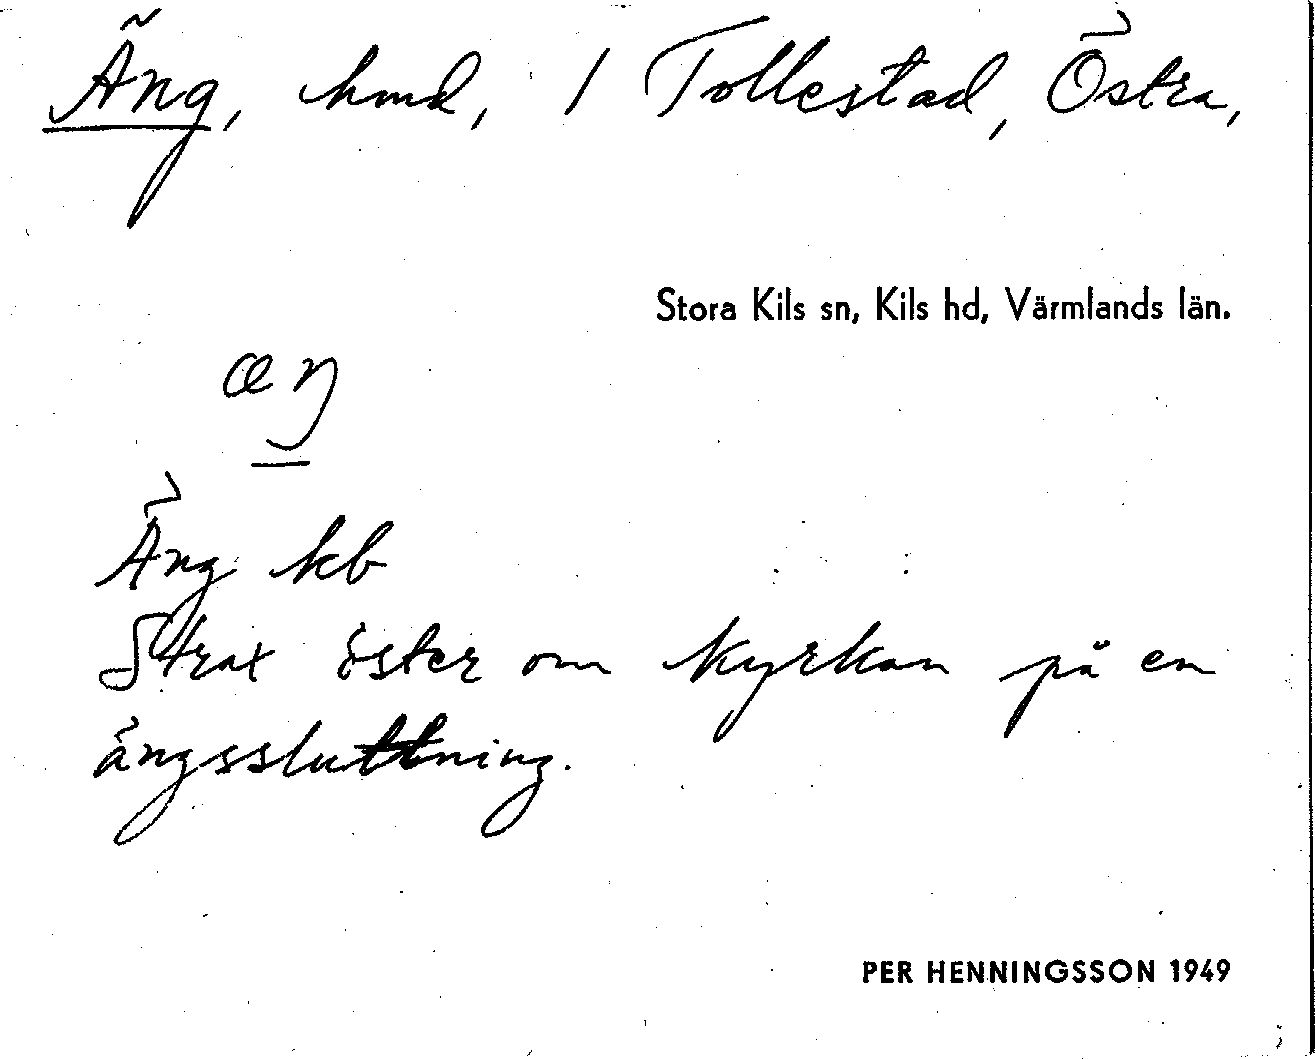 Äng, hmd, 1 Tollestad, Östra,
Stora Kils sn, Kils hd, Värmlands län.
æŋ
Äng kb
Strax öster om kyrkan på en
ängssluttning.
PER HENNINGSSON 1949